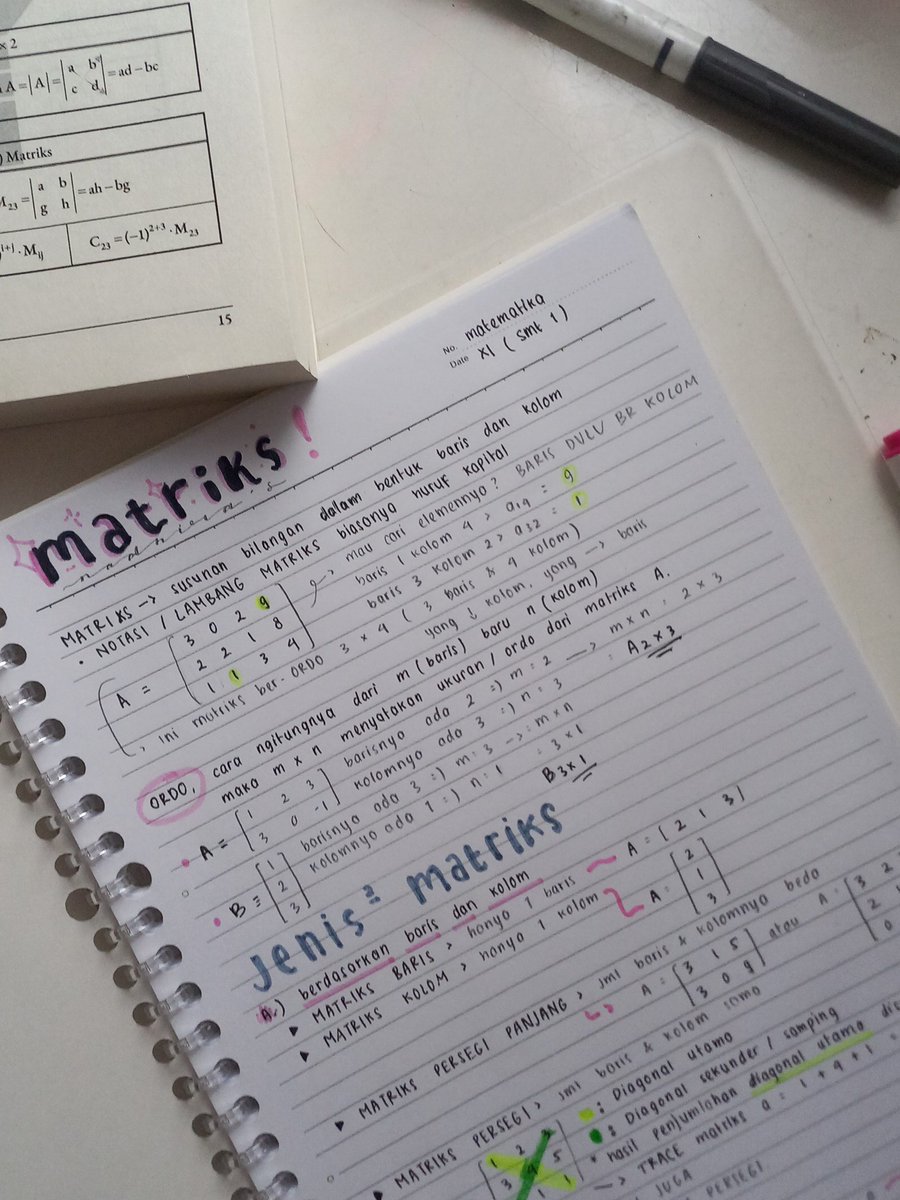 x 2
A = |A| = |a b c d| = ad – bc
) Matriks
M₂₃ = |a b g h| = ah – bg
i+j · Mij
C₂₃ = (–1)²⁺³ · M₂₃
15
No. matematika
Date XI ( smt 1 )
matriks !
MATRIKS → susunan bilangan dalam bentuk baris dan kolom
• NOTASI / LAMBANG MATRIKS biasanya huruf kapital
→ mau cari elemennya? BARIS DULU BR KOLOM
baris 1 kolom 4 > a14 = 9
baris 3 kolom 2 > a32 = 1
A =
3 0 2 9
2 2 1 8
1 1 3 4
, ini matriks ber-ORDO 3 x 4 ( 3 baris & 4 kolom)
yang ↓ kolom, yang → baris
ORDO, cara ngitungnya dari m (baris) baru n (kolom)
maka m x n menyatakan ukuran / ordo dari matriks A.
• A =
1 2 3
3 0 -1
barisnya ada 2 =) m = 2 → m x n : 2 x 3
kolomnya ada 3 =) n = 3 : A2x3
• B =
1
2
3
barisnya ada 3 =) m : 3 → : m x n
kolomnya ada 1 =) n : 1 : 3 x 1
B3x1
Jenis² matriks
A.) berdasarkan baris dan kolom
▸ MATRIKS BARIS > hanya 1 baris ~ A = [ 2 1 3 ]
▸ MATRIKS KOLOM > hanya 1 kolom
A =
2
1
3
▸ MATRIKS PERSEGI PANJANG > jml baris & kolomnya beda
↳ A =
3 1 5
3 0 9
atau A =
3 2
2
0
▸ MATRIKS PERSEGI > jml baris & kolom sama
1 2
3 4 5
1 1
: Diagonal utama
: Diagonal sekunder / samping
* hasil penjumlahan diagonal utama
→ TRACE matriks a = 1 + 4 + 1 =
JUGA
PERSEGI